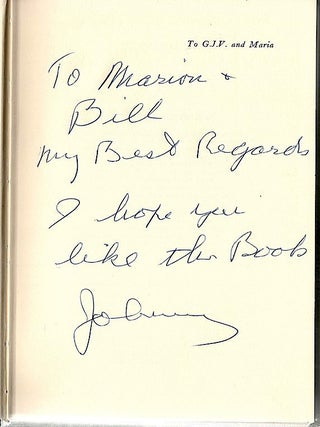 To G.J.V. and Maria
To Marion &
Bill
my Best Regards
I hope you
like the Book
Johnny